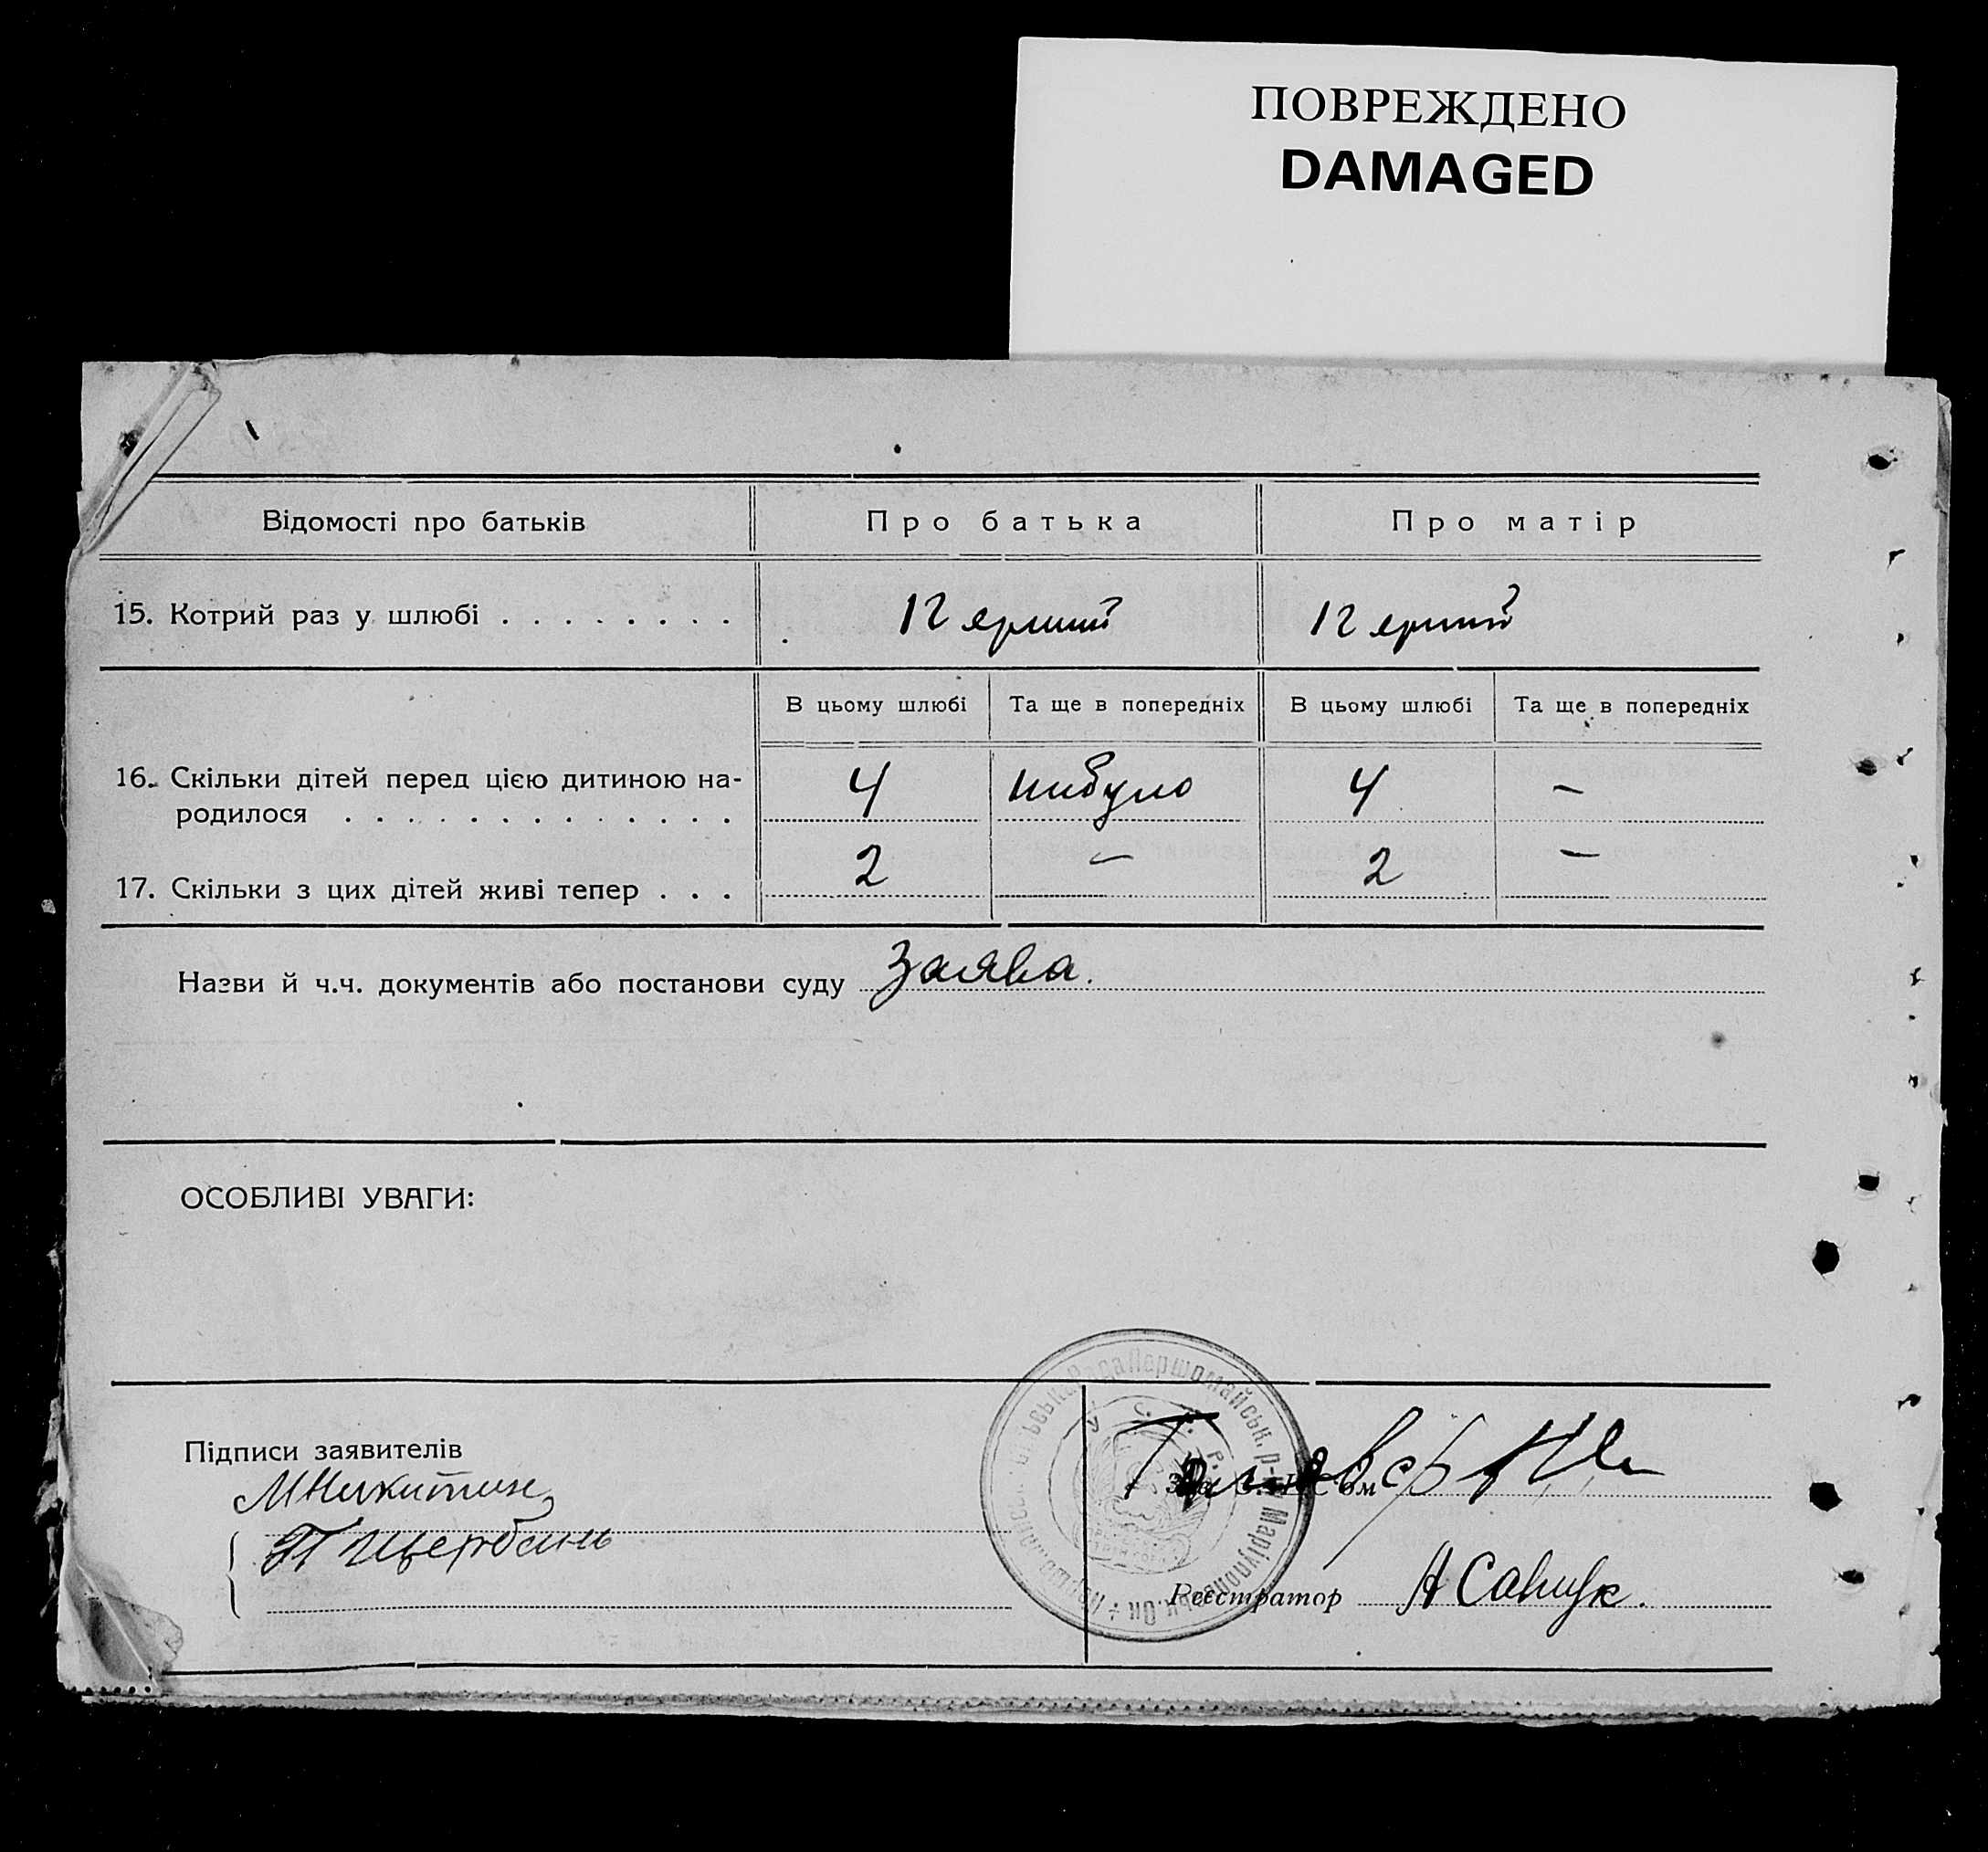 ПОВРЕЖДЕНО
DAMAGED
Відомості про батьків Про батька Про матір
15. Котрий раз у шлюбі . . . . . . . . Перший Перший
В цьому шлюбі Та ще в попередніх В цьому шлюбі Та ще в попередніх
16. Скільки дітей перед цією дитиною на-
родилося . . . . . . . . . . . . . 4 нибуло 4 -
17. Скільки з цих дітей живі тепер . . . 2 - 2 -
Назви й ч.ч. документів або постанови суду Заява.
ОСОБЛИВІ УВАГИ:
Підписи заявителів
МНикитин
П Щербань
Першомайськ. р- Маріупольськ. Ок
У. С. Р. Р.
Реєстратор А Савчук.